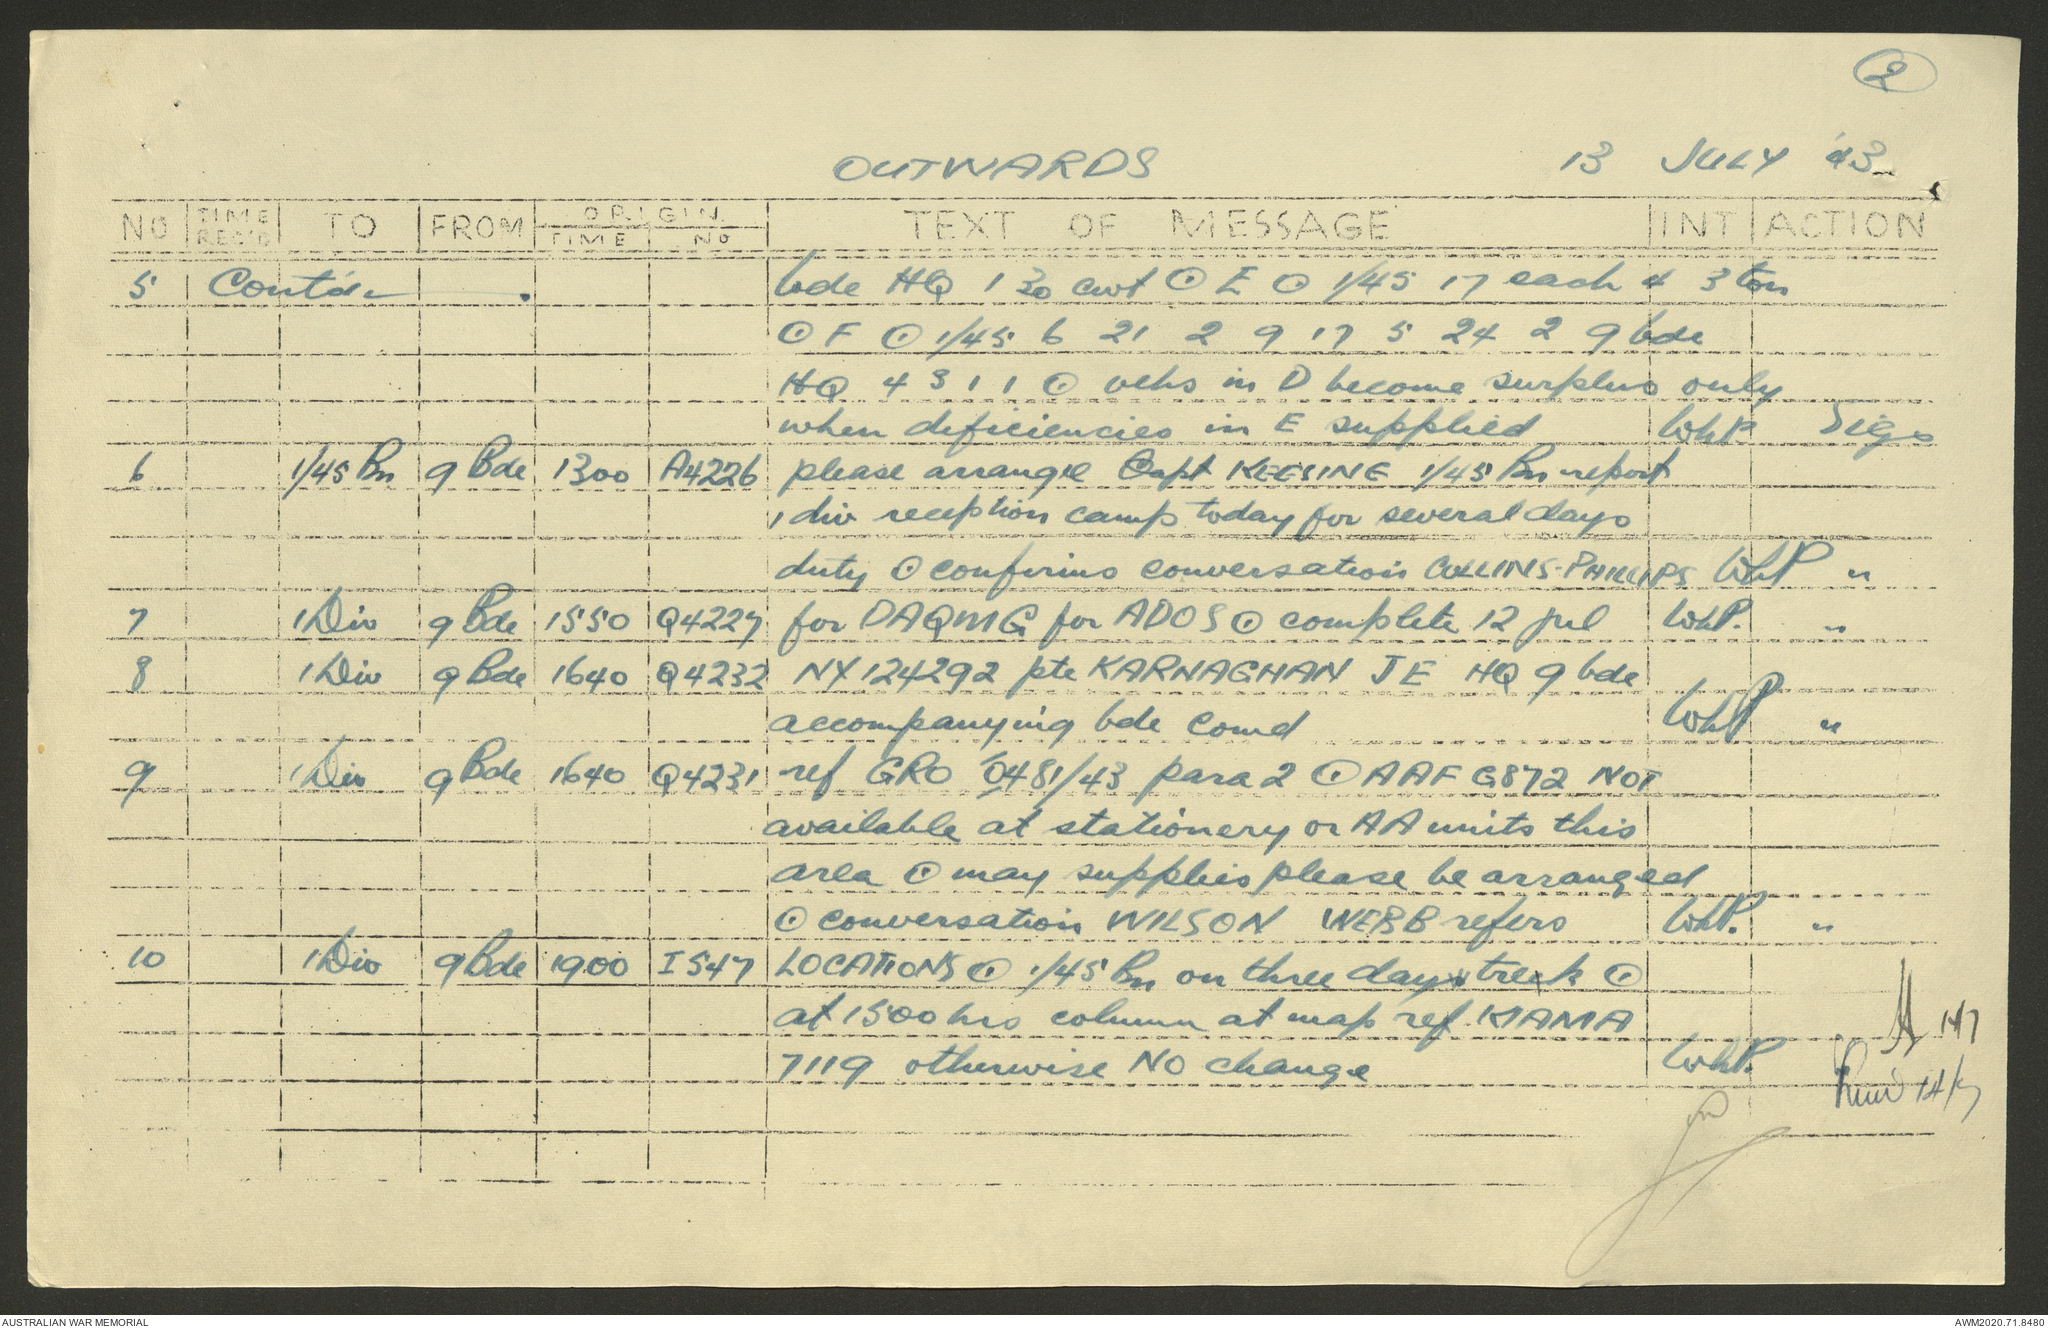 2
OUTWARDS 13 JULY 43
NO TIME REC'D TO FROM ORIGIN TIME NO TEXT OF MESSAGE INT ACTION
5 Contd. bde HQ 1 30 cwt ⊙ E ⊙ 1/45 17 each 4 3 ton
⊙ F ⊙ 1/45 6 21 2 9 17 5 24 2 9 bde
HQ 4 3 1 1 ⊙ vehs in D become surplus only
when deficiencies in E supplied WhP. Sigs
6 1/45 Bn 9 Bde 1300 A4226 please arrange Capt KEESING 1/45 Bn report
1 div reception camp today for several days
duty ⊙ confirms conversation COLLINS-PHILLIPS WhP "
7 1 Div 9 Bde 1550 Q4227 for DAQMG for ADOS ⊙ complete 12 jul WhP. "
8 1 Div 9 Bde 1640 Q4232 NX124292 pte KARNAGHAN J E HQ 9 bde
accompanying bde comd WhP "
9 1 Div 9 Bde 1640 Q4231 ref GRO 0481/43 para 2 ⊙ AAF G872 NOT
available at stationery or AA units this
area ⊙ may supplies please be arranged
⊙ conversation WILSON WEBB refers WhP. "
10 1 Div 9 Bde 1900 I547 LOCATIONS ⊙ 1/45 Bn on three days trek ⊙
at 1500 hrs column at map ref. KIAMA
7119 otherwise NO change WhP.
14/7
14/7
AUSTRALIAN WAR MEMORIAL AWM2020.71.8480